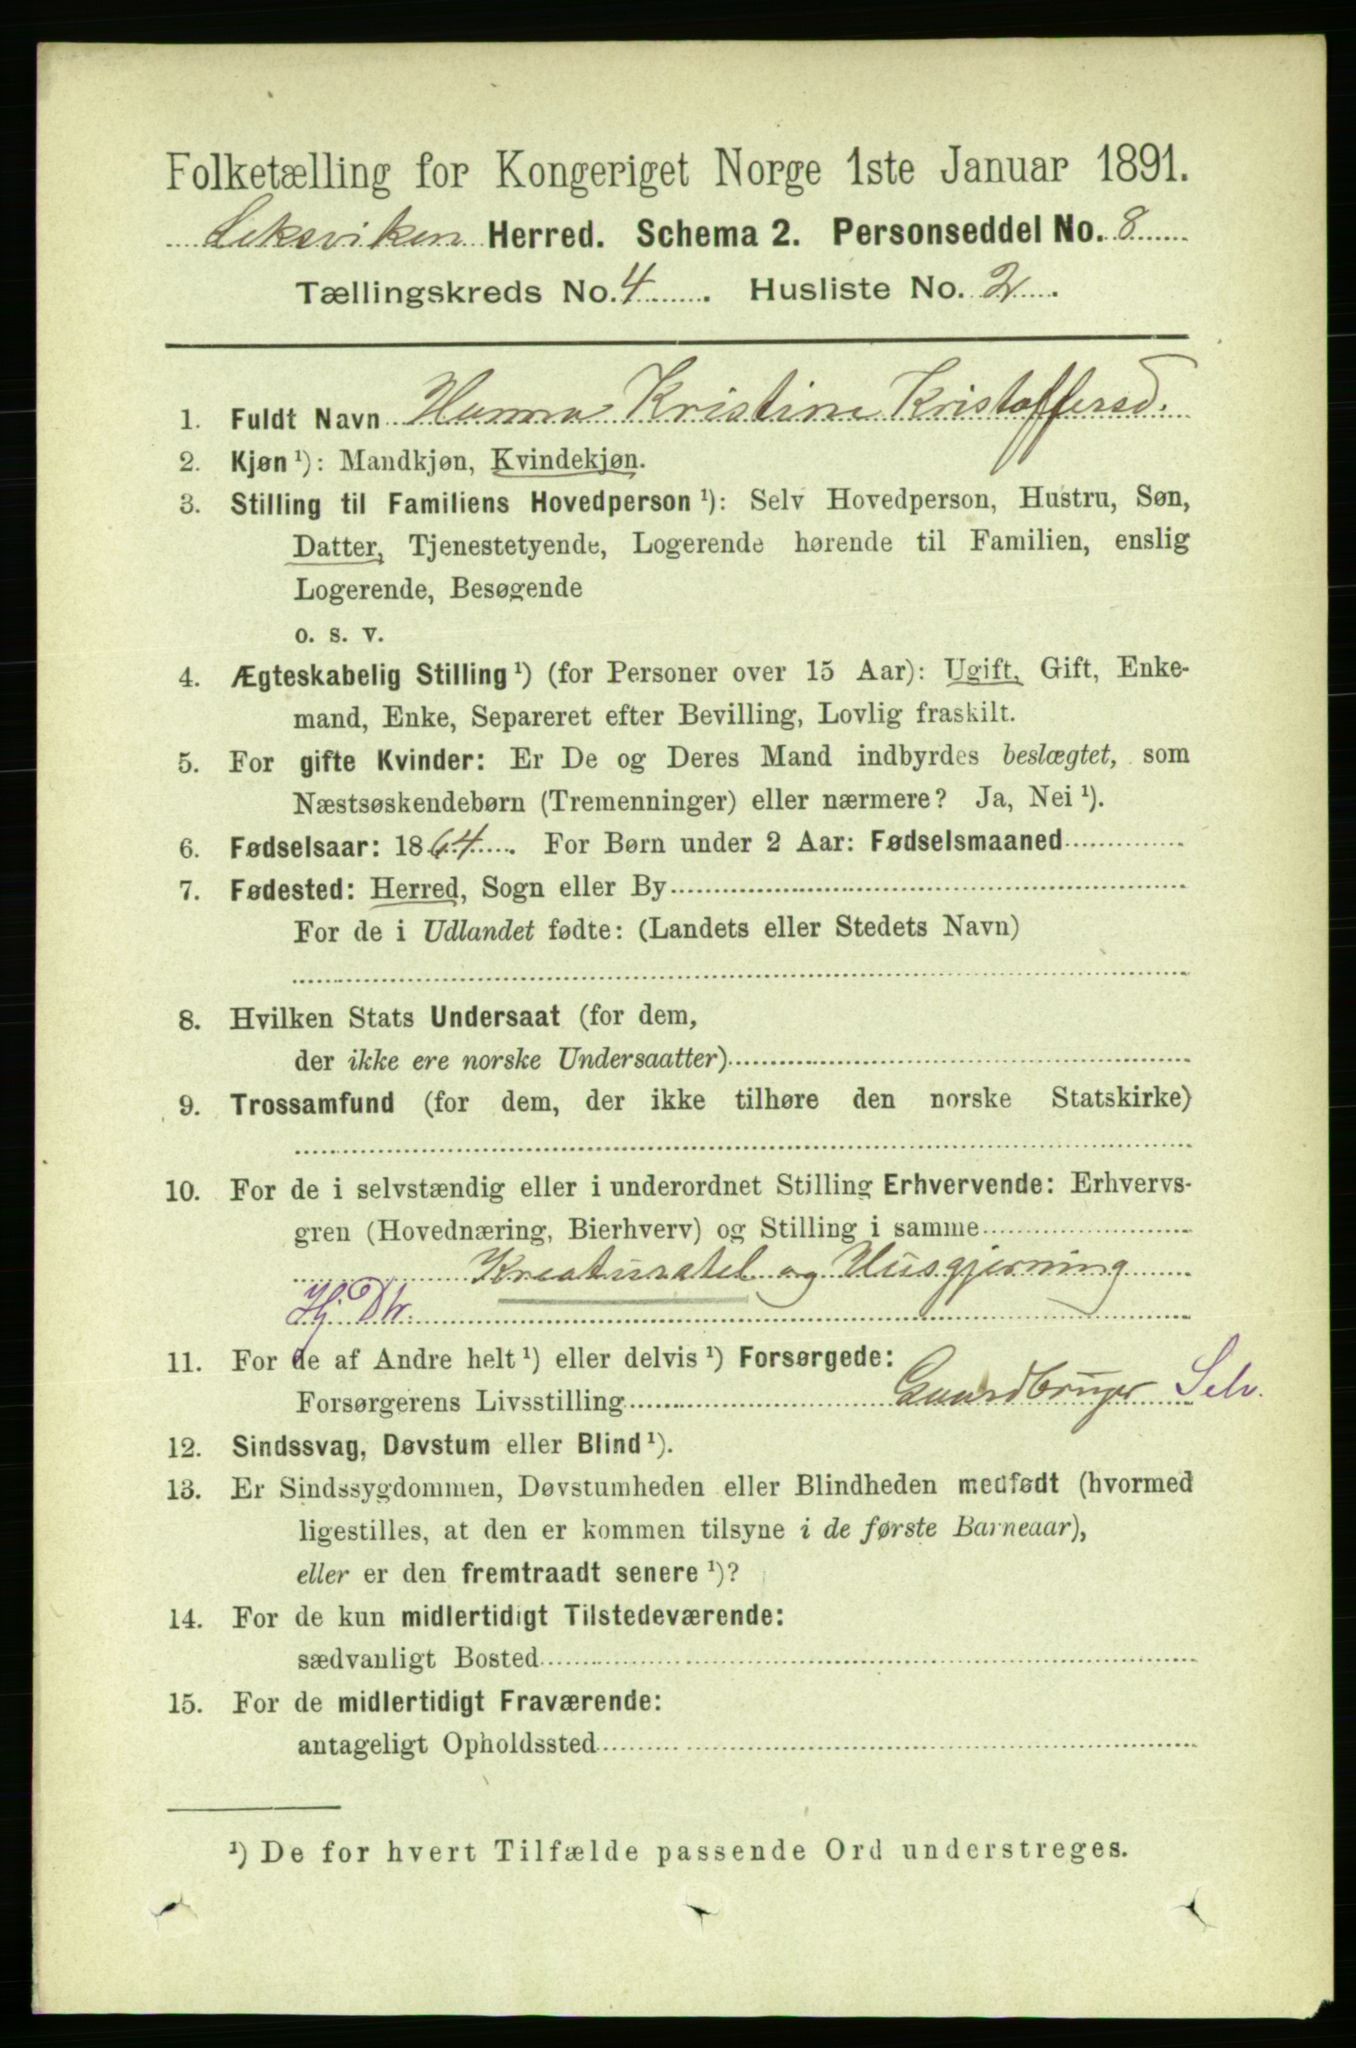 Folketælling for Kongeriget Norge 1ste Januar 1891.
Leksviken Herred. Schema 2. Personseddel No. 8
Tællingskreds No. 4. Husliste No. 2.
1. Fuldt Navn Hanna Kristine Kristoffersd.
2. Kjøn ¹): Mandkjøn, Kvindekjøn.
3. Stilling til Familiens Hovedperson ¹): Selv Hovedperson, Hustru, Søn,
Datter, Tjenestetyende, Logerende hørende til Familien, enslig
Logerende, Besøgende
o. s. v.
4. Ægteskabelig Stilling ¹) (for Personer over 15 Aar): Ugift, Gift, Enke-
mand, Enke, Separeret efter Bevilling, Lovlig fraskilt.
5. For gifte Kvinder: Er De og Deres Mand indbyrdes beslægtet, som
Næstsøskendebørn (Tremenninger) eller nærmere? Ja, Nei ¹).
6. Fødselsaar: 1864. For Børn under 2 Aar: Fødselsmaaned
7. Fødested: Herred, Sogn eller By
For de i Udlandet fødte: (Landets eller Stedets Navn)
8. Hvilken Stats Undersaat (for dem,
der ikke ere norske Undersaatter)
9. Trossamfund (for dem, der ikke tilhøre den norske Statskirke)
10. For de i selvstændig eller i underordnet Stilling Erhvervende: Erhvervs-
gren (Hovednæring, Bierhverv) og Stilling i samme
Kreaturstel og Husgjerning
Hj. Dtr.
11. For de af Andre helt ¹) eller delvis ¹) Forsørgede:
Forsørgerens Livsstilling Gaardbruger Selv.
12. Sindssvag, Døvstum eller Blind ¹).
13. Er Sindssygdommen, Døvstumheden eller Blindheden medfødt (hvormed
ligestilles, at den er kommen tilsyne i de første Barneaar),
eller er den fremtraadt senere ¹)?
14. For de kun midlertidigt Tilstedeværende:
sædvanligt Bosted
15. For de midlertidigt Fraværende:
antageligt Opholdssted
¹) De for hvert Tilfælde passende Ord understreges.